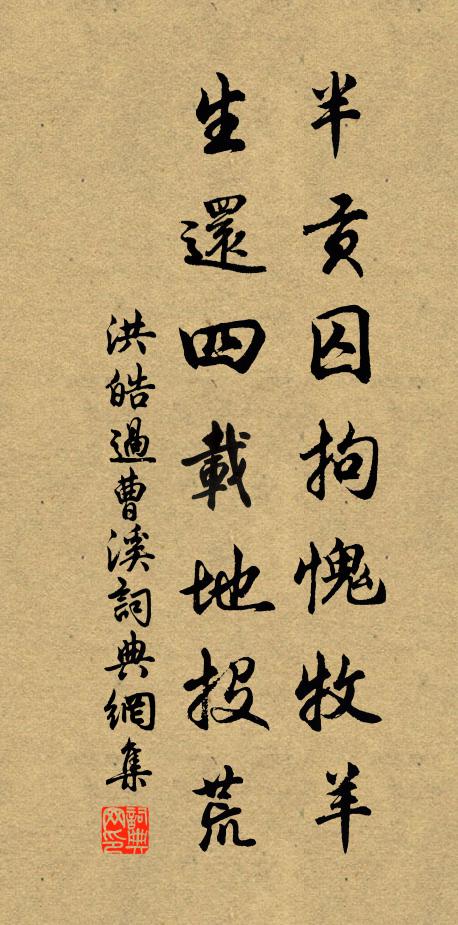 半貢囚拘愧牧羊
生還四載地投荒
洪皓過曹溪詞典網集
詞典網印